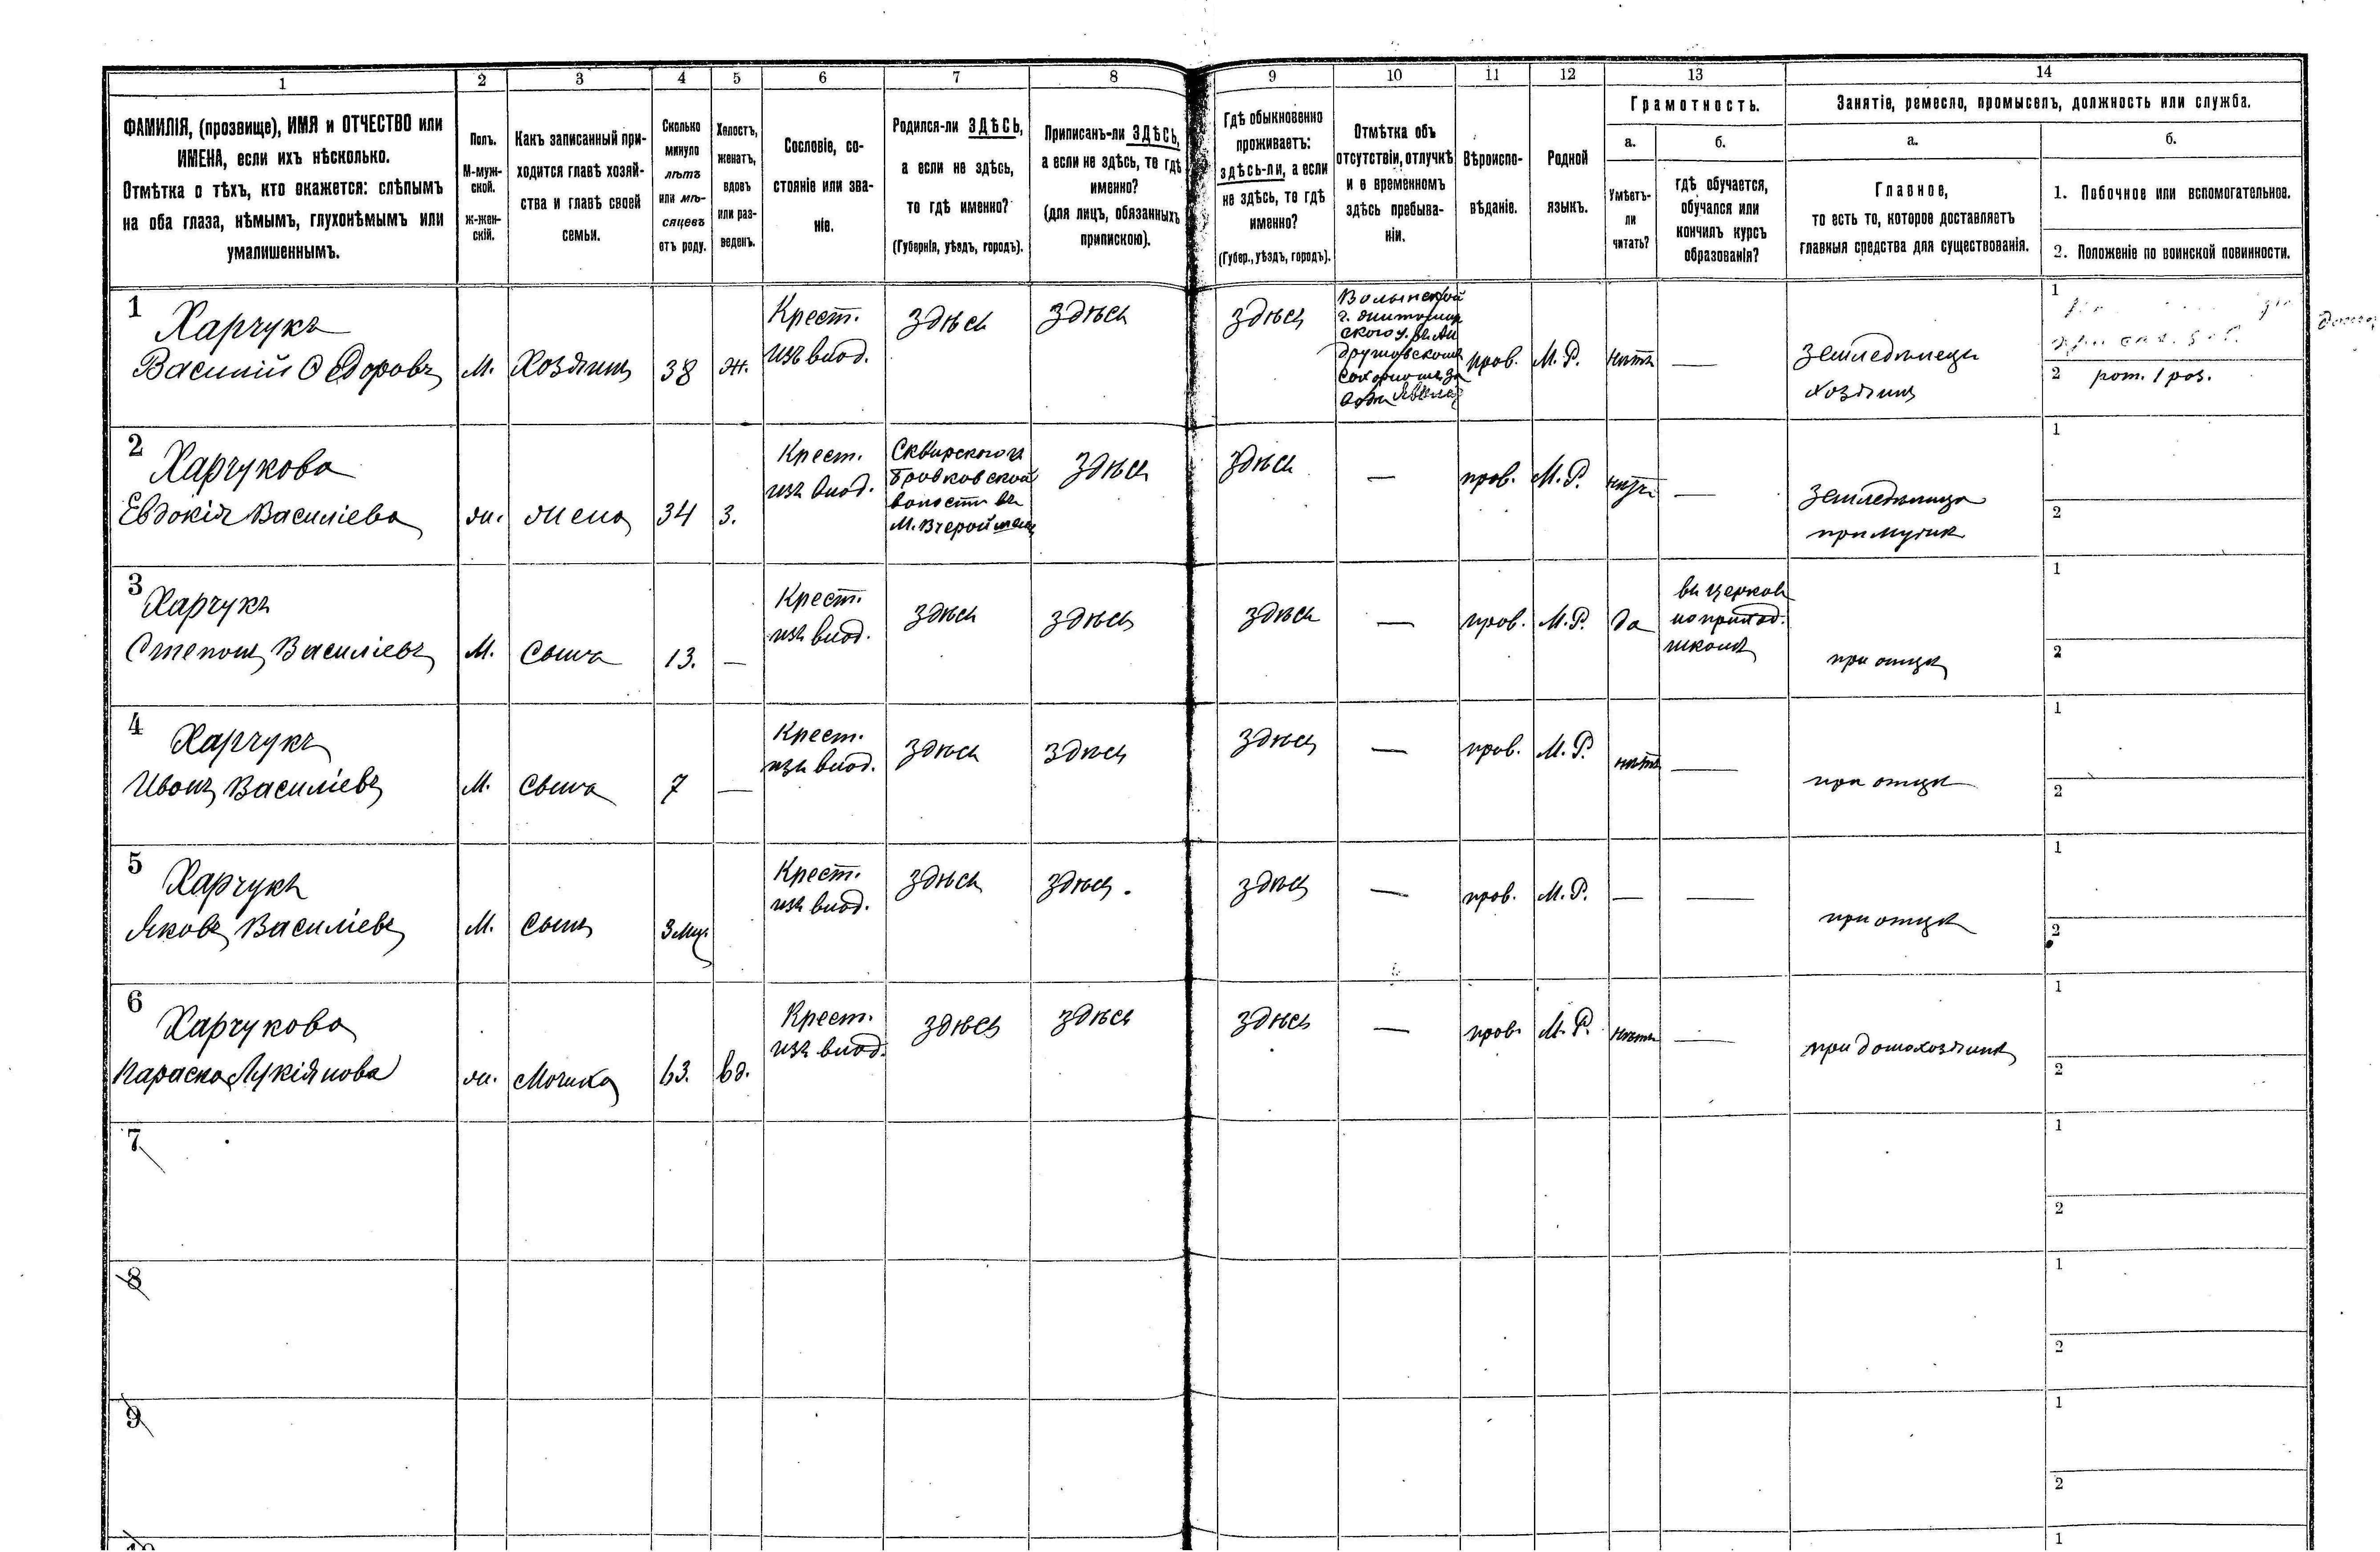 1 2 3 4 5 6 7 8 9 10 11 12 13 14
ФАМИЛІЯ, (прозвище), ИМЯ и ОТЧЕСТВО или
ИМЕНА, если ихъ нѣсколько.
Отмѣтка о тѣхъ, кто окажется: слѣпымъ
на оба глаза, нѣмымъ, глухонѣмымъ или
умалишеннымъ.
Полъ.
М-муж-
ской.
ж-жен-
скій.
Какъ записанный при-
ходится главѣ хозяй-
ства и главѣ своей
семьи.
Сколько
минуло
лѣтъ
или мѣ-
сяцевъ
отъ роду.
Холостъ,
женатъ,
вдовъ
или раз-
веденъ.
Сословіе, со-
стояніе или зва-
ніе.
Родился-ли ЗДѢСЬ,
а если не здѣсь,
то гдѣ именно?
(Губернія, уѣздъ, городъ).
Приписанъ-ли ЗДѢСЬ,
а если не здѣсь, то гдѣ
именно?
(для лицъ, обязанныхъ
припискою).
Гдѣ обыкновенно
проживаетъ:
здѣсь-ли, а если
не здѣсь, то гдѣ
именно?
(Губер., уѣздъ, городъ).
Отмѣтка объ
отсутствіи, отлучкѣ
и о временномъ
здѣсь пребыва-
ніи.
Вѣроиспо-
вѣданіе.
Родной
языкъ.
Грамотность.
а.
Умѣетъ-
ли
читать?
б.
гдѣ обучается,
обучался или
кончилъ курсъ
образованія?
Занятіе, ремесло, промыселъ, должность или служба.
а.
Главное,
то есть то, которое доставляетъ
главныя средства для существованія.
б.
1. Побочное или вспомогательное.
2. Положеніе по воинской повинности.
1
Харчукъ
Василій Ѳедоровъ
М.
Хозяинъ
38
Ж.
Крест.
изъ влод.
здѣсь
здѣсь
здѣсь
Волынской
г. Житомир
ского у.
пров.
М. Р.
нѣтъ
—
Земледѣлецъ
хозяинъ
1
2 рот. 1 роз.
2
Харчукова
Евдокія Василіева
ж.
жена
34
З.
Крест.
изъ влод.
Сквирского у
Бровковской
волости въ
М. Вчерайше
здѣсь
здѣсь
—
пров.
М. Р.
нѣтъ
—
Земледѣлица
при мужѣ
1
2
3
Харчукъ
Степанъ Василіевъ
М.
Сынъ
13.
—
Крест.
изъ влод.
здѣсь
здѣсь
здѣсь
—
пров.
М. Р.
да
въ церков
но приход.
школѣ
при отцѣ
1
2
4
Харчукъ
Иванъ Василіевъ
М.
Сынъ
7
—
Крест.
изъ влод.
здѣсь
здѣсь
здѣсь
—
пров.
М. Р.
нѣтъ
—
при отцѣ
1
2
5
Харчукъ
Яковъ Василіевъ
М.
Сынъ
3 мц.
Крест.
изъ влод.
здѣсь
здѣсь.
здѣсь
—
пров.
М. Р.
—
—
при отцѣ
1
2
6
Харчукова
Параска Лукіянова
ж.
Мачиха
63.
вд.
Крест.
изъ влод.
здѣсь
здѣсь
здѣсь
—
пров.
М. Р.
нѣтъ
—
при домохозяинѣ
1
2
7
1
2
8
1
2
9
1
2
1